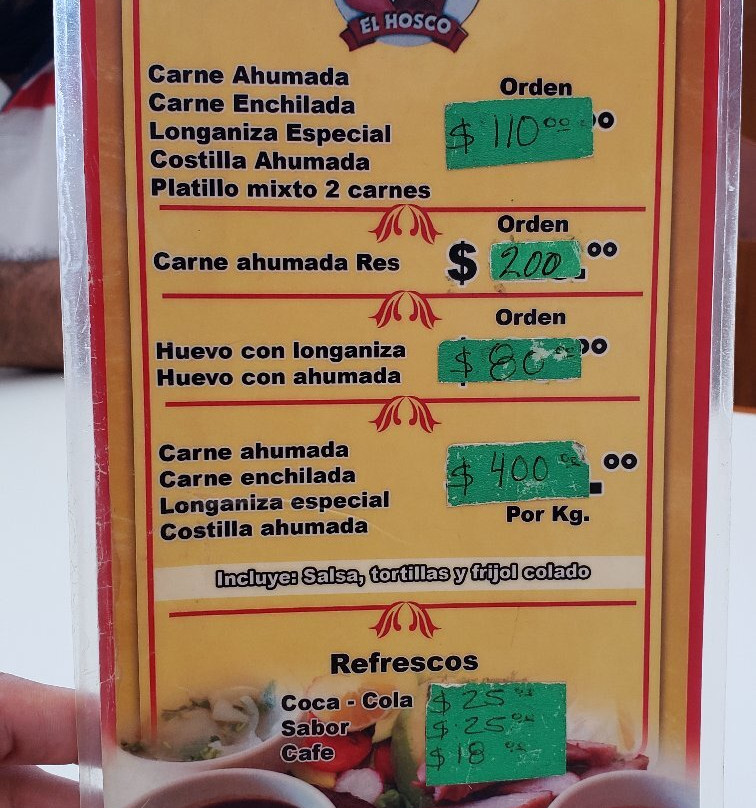 EL HOSCO
Carne Ahumada
Orden
Carne Enchilada
Longaniza Especial
$ 110.00 00
Costilla Ahumada
Platillo mixto 2 carnes
Orden
Carne ahumada Res $ 200 .00
Orden
Huevo con longaniza
$ 80.00 00
Huevo con ahumada
Carne ahumada
Carne enchilada
$ 400.00 .00
Longaniza especial
Por Kg.
Costilla ahumada
Incluye: Salsa, tortillas y frijol colado
Refrescos
Coca - Cola $ 25.00
Sabor $ 25.00
Cafe $ 18.00